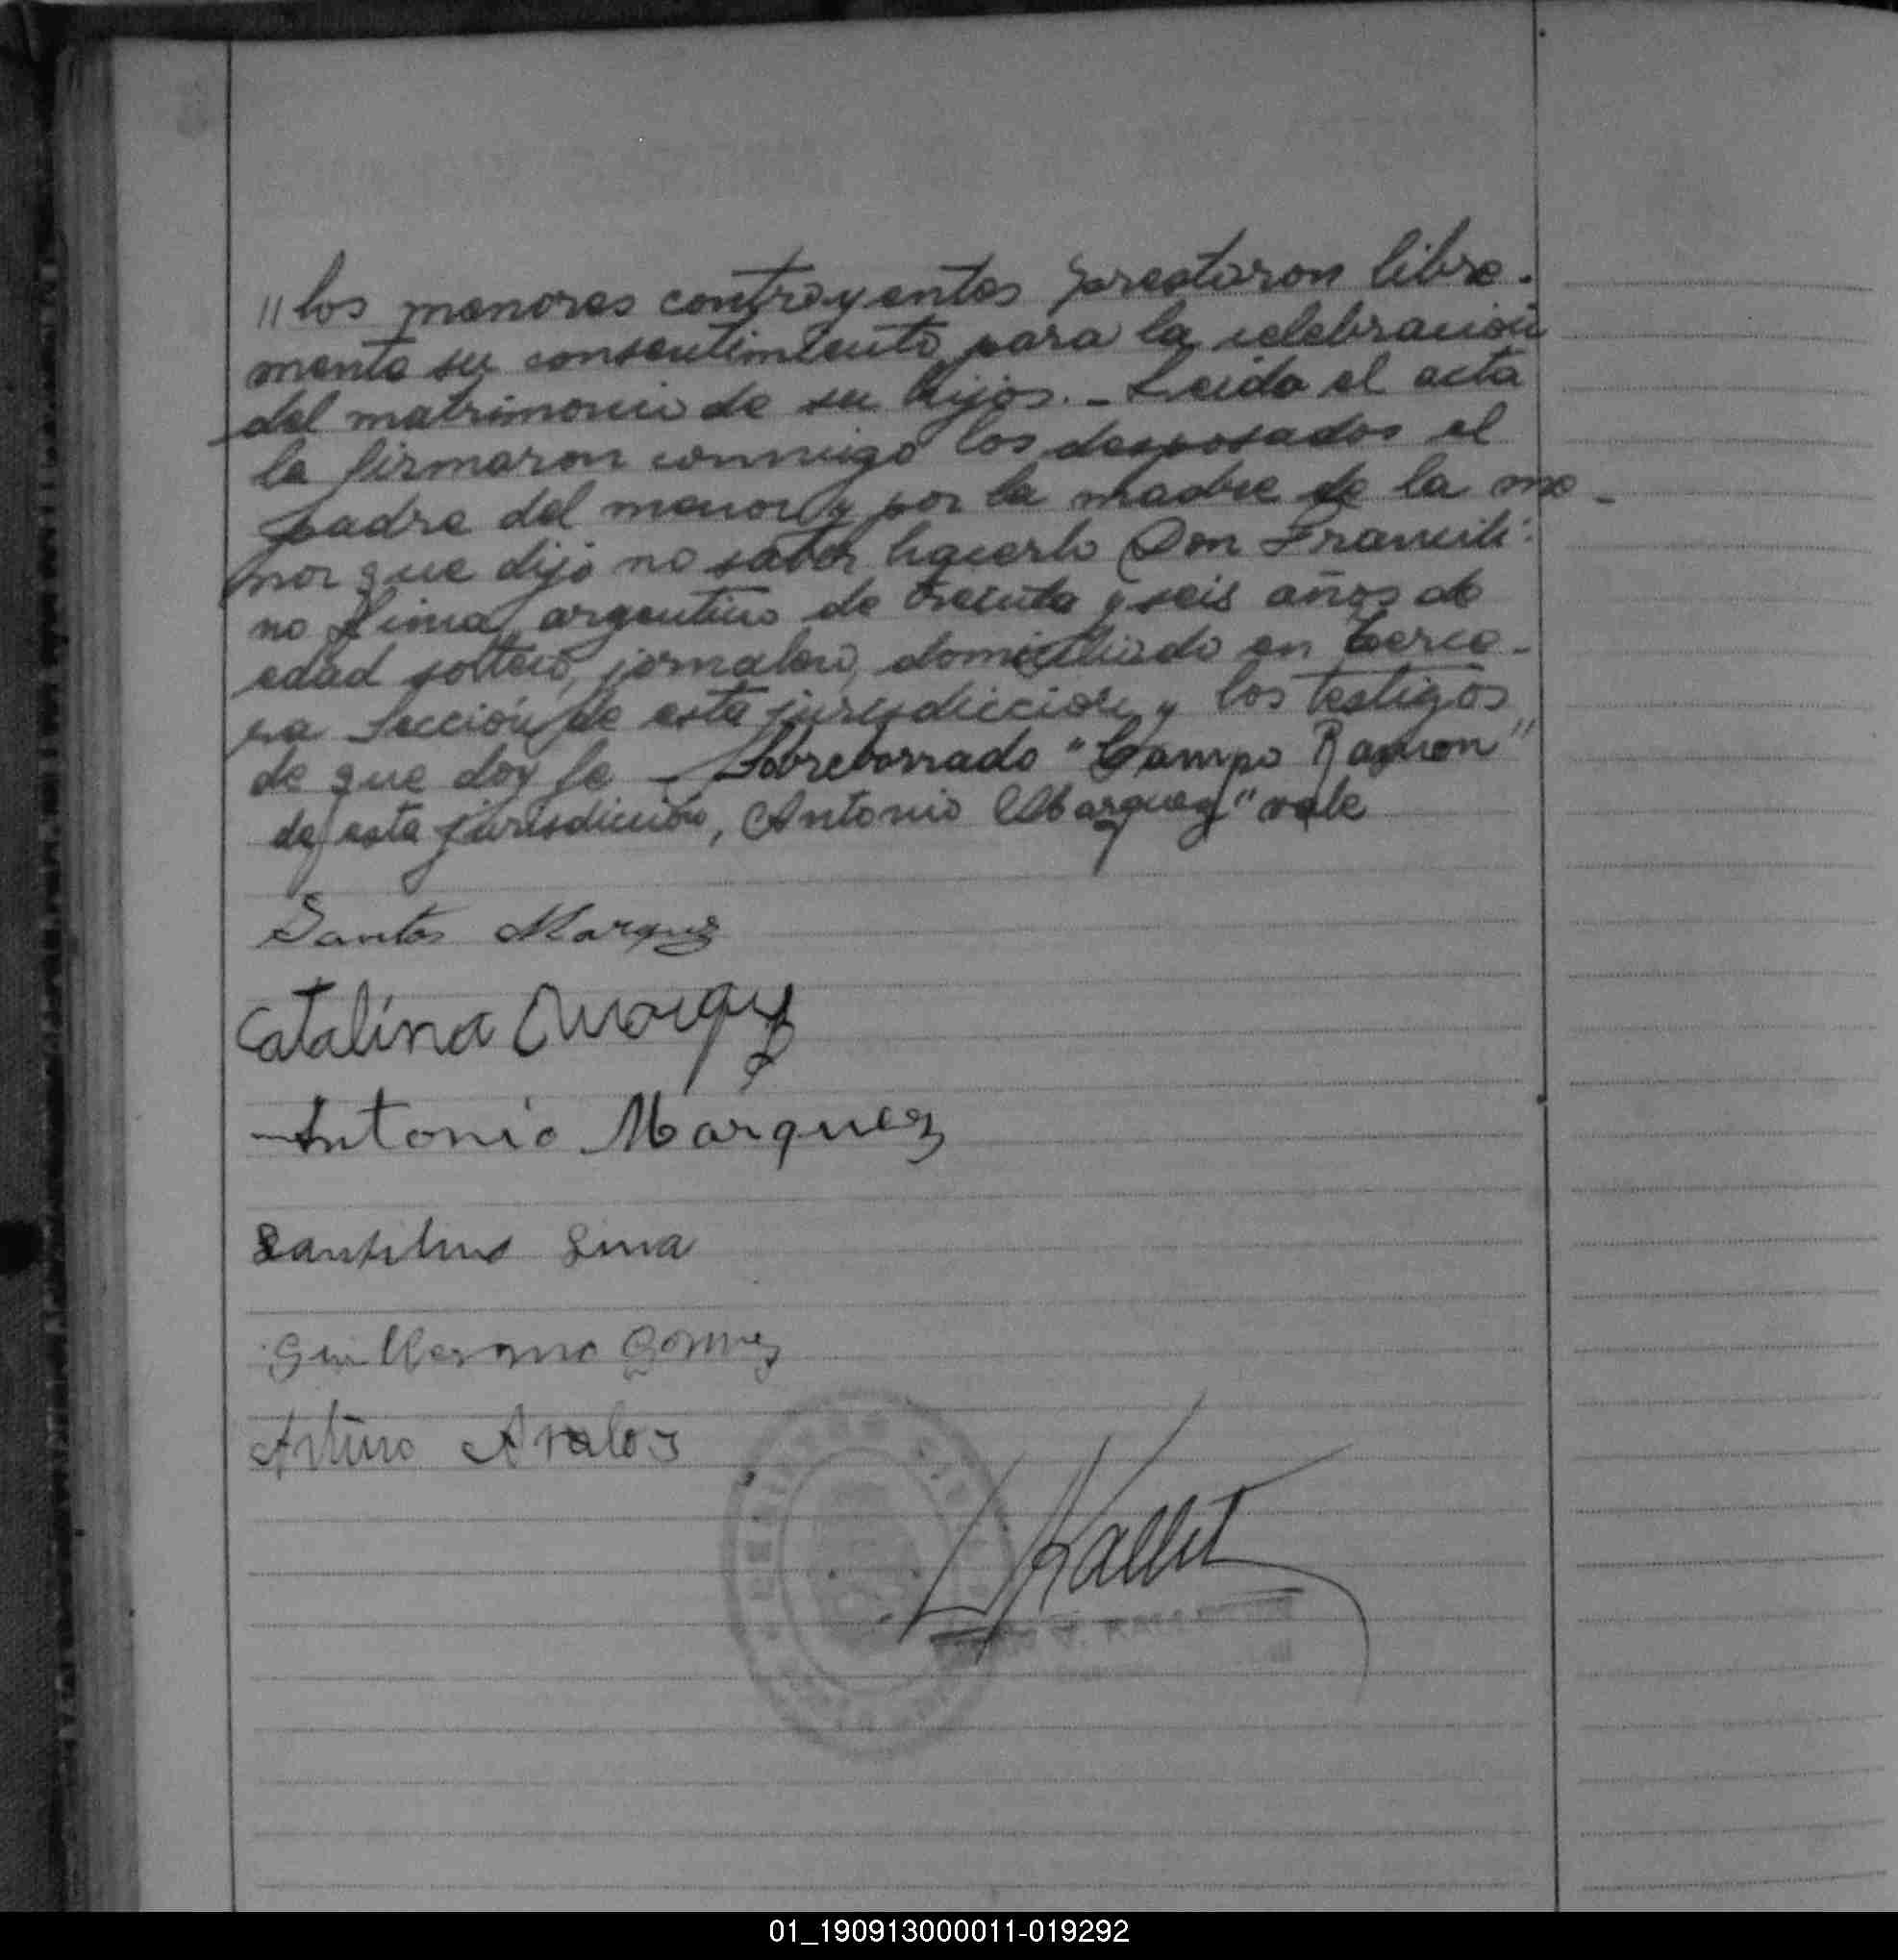 "los menores contrayentes prestaron libre-
mente su consentimiento para la celebración
del matrimonio de su hijos.- Leida el acta
la firmaron conmigo los desposados el
padre del menor y por la madre de la me-
nor que dijo no saber hacerlo Don
no Lima, argentino de treinta y seis años de
edad soltero, jornalero, domiciliado en Terce-
ra Sección de esta jurisdicción y los testigos
de que doy fe - Sobreborrado "Campo Ramon"
de esta jurisdicción, Antonio Marquez" vale
Santos Marquez
Catalina
Antonio Marquez
Lima
Guillermo Gomez
Arturo Avalos
Kallit
01_190913000011-019292